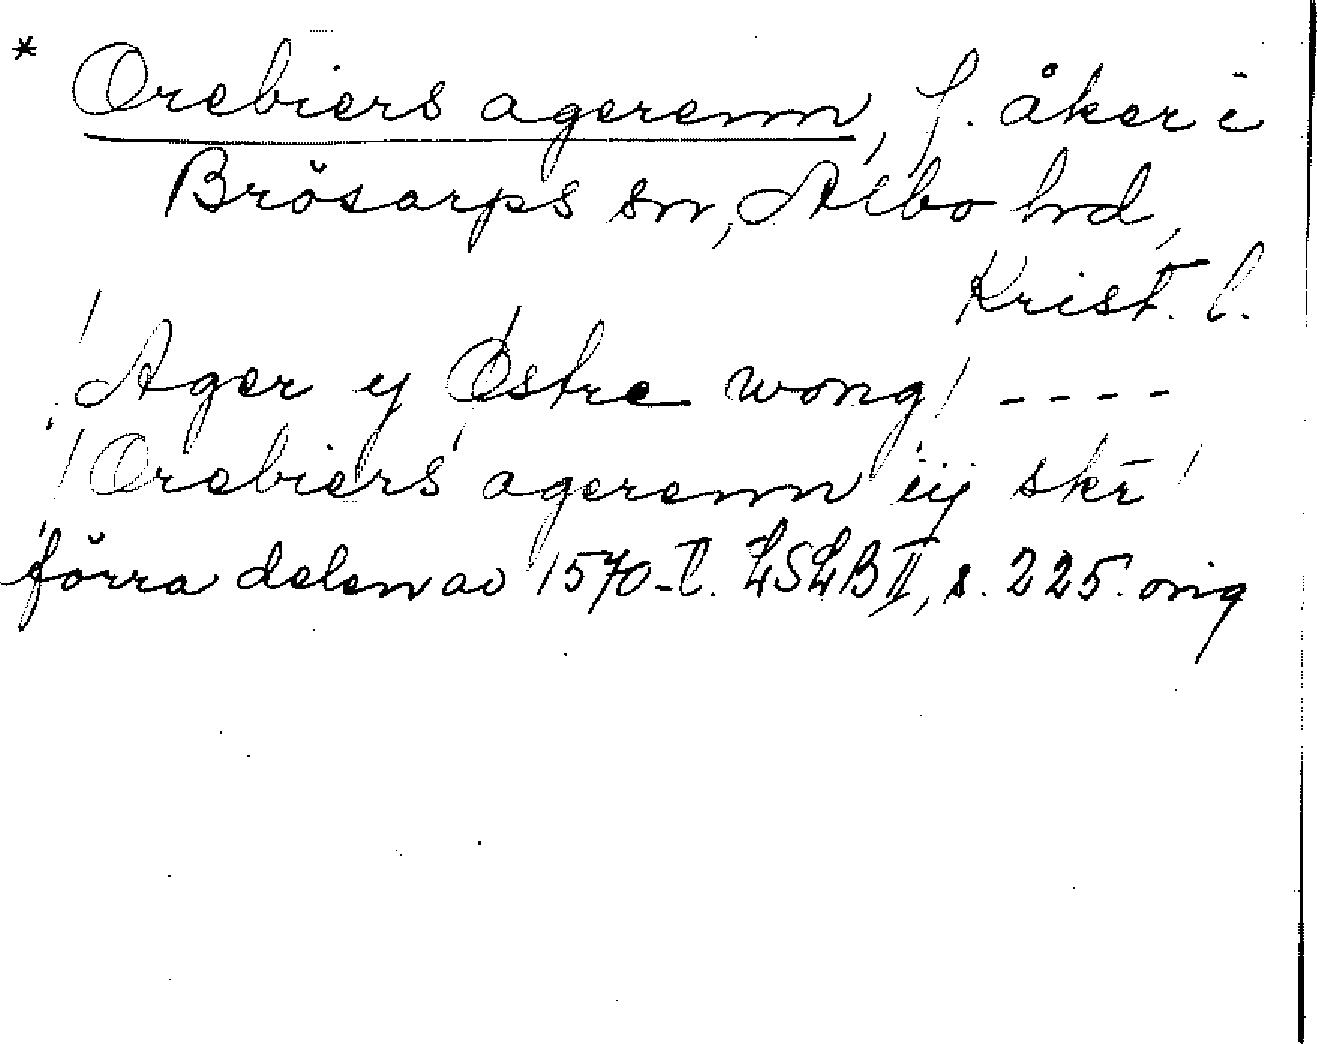 * Orebiers agerenn, f. åker i
Brösarps sn, Albo hd,
Krist. l.
'Ager y Østre wong' ----
'Orebiers agerenn iij skr̄'
förra delen av 1570-t. LSLB II, s. 225. orig